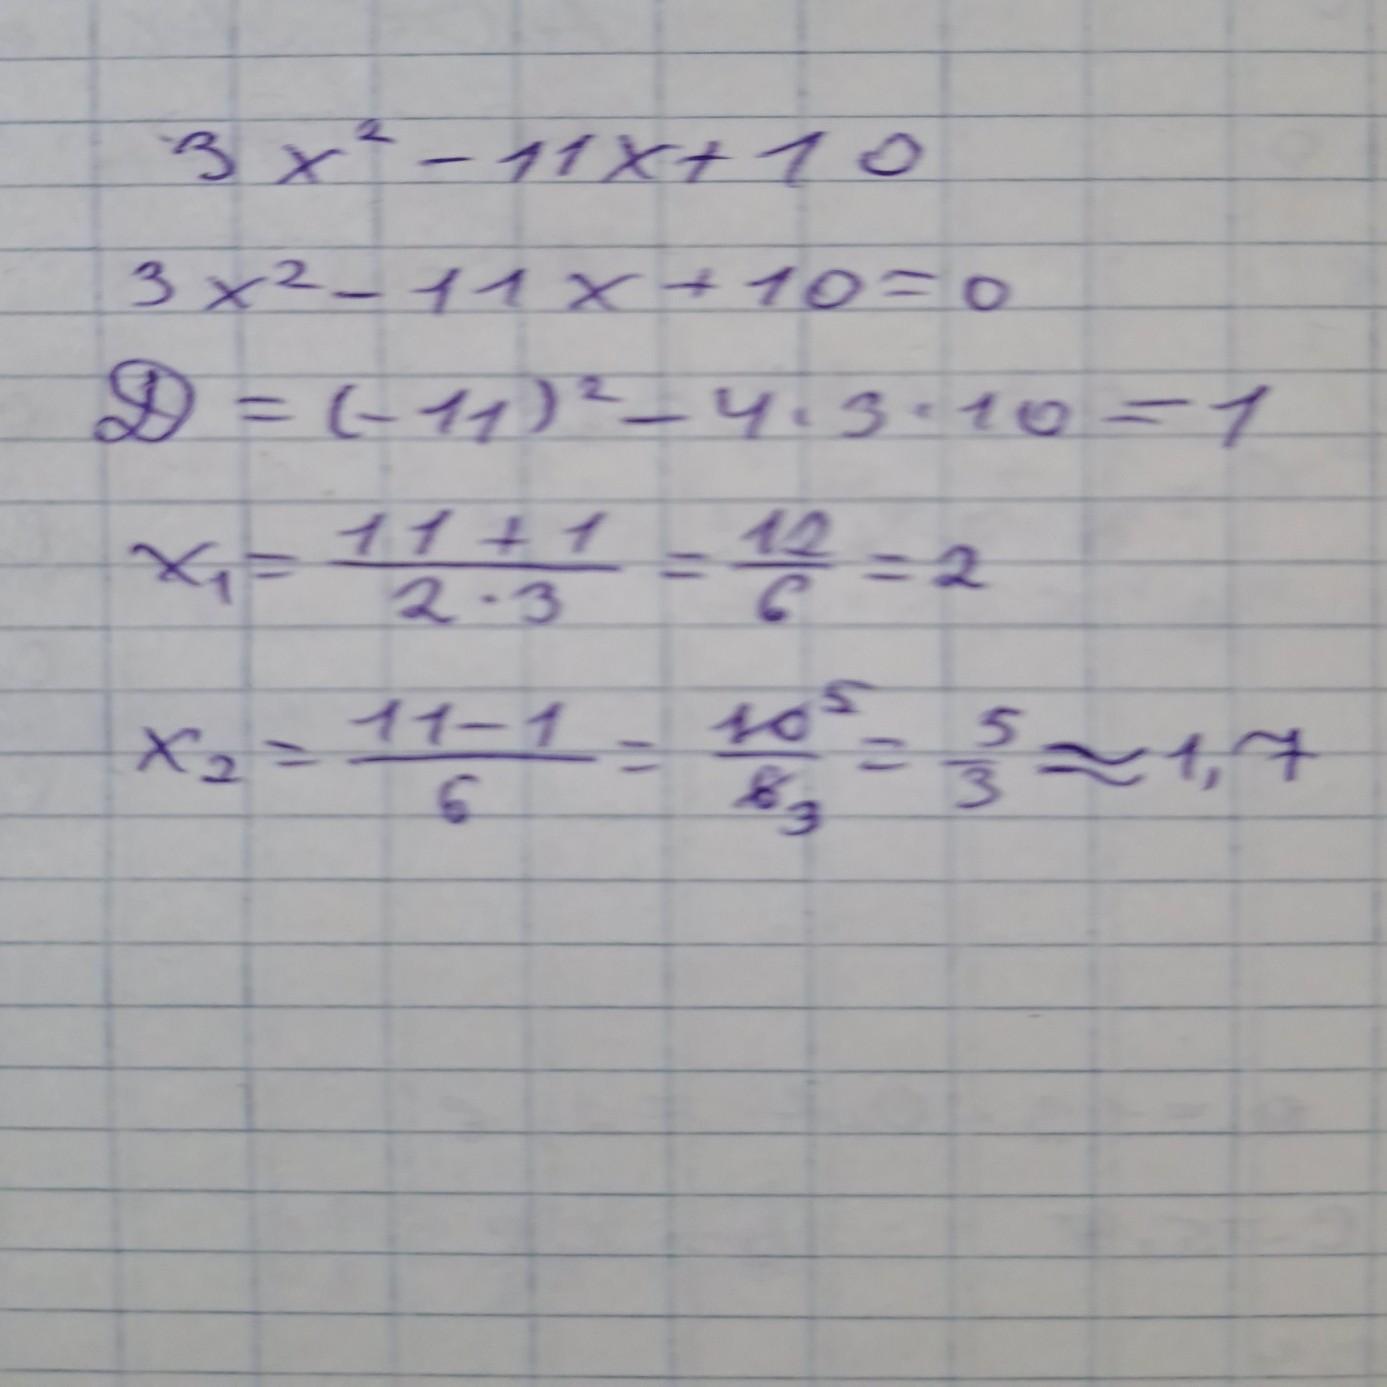 3x² - 11x + 10
3x² - 11x + 10 = 0
D = (-11)² - 4 · 3 · 10 = 1
x₁ = \frac{11 + 1}{2 · 3} = \frac{12}{6} = 2
x₂ = \frac{11 - 1}{6} = \frac{10^5}{6_3} = \frac{5}{3} ≈ 1,7